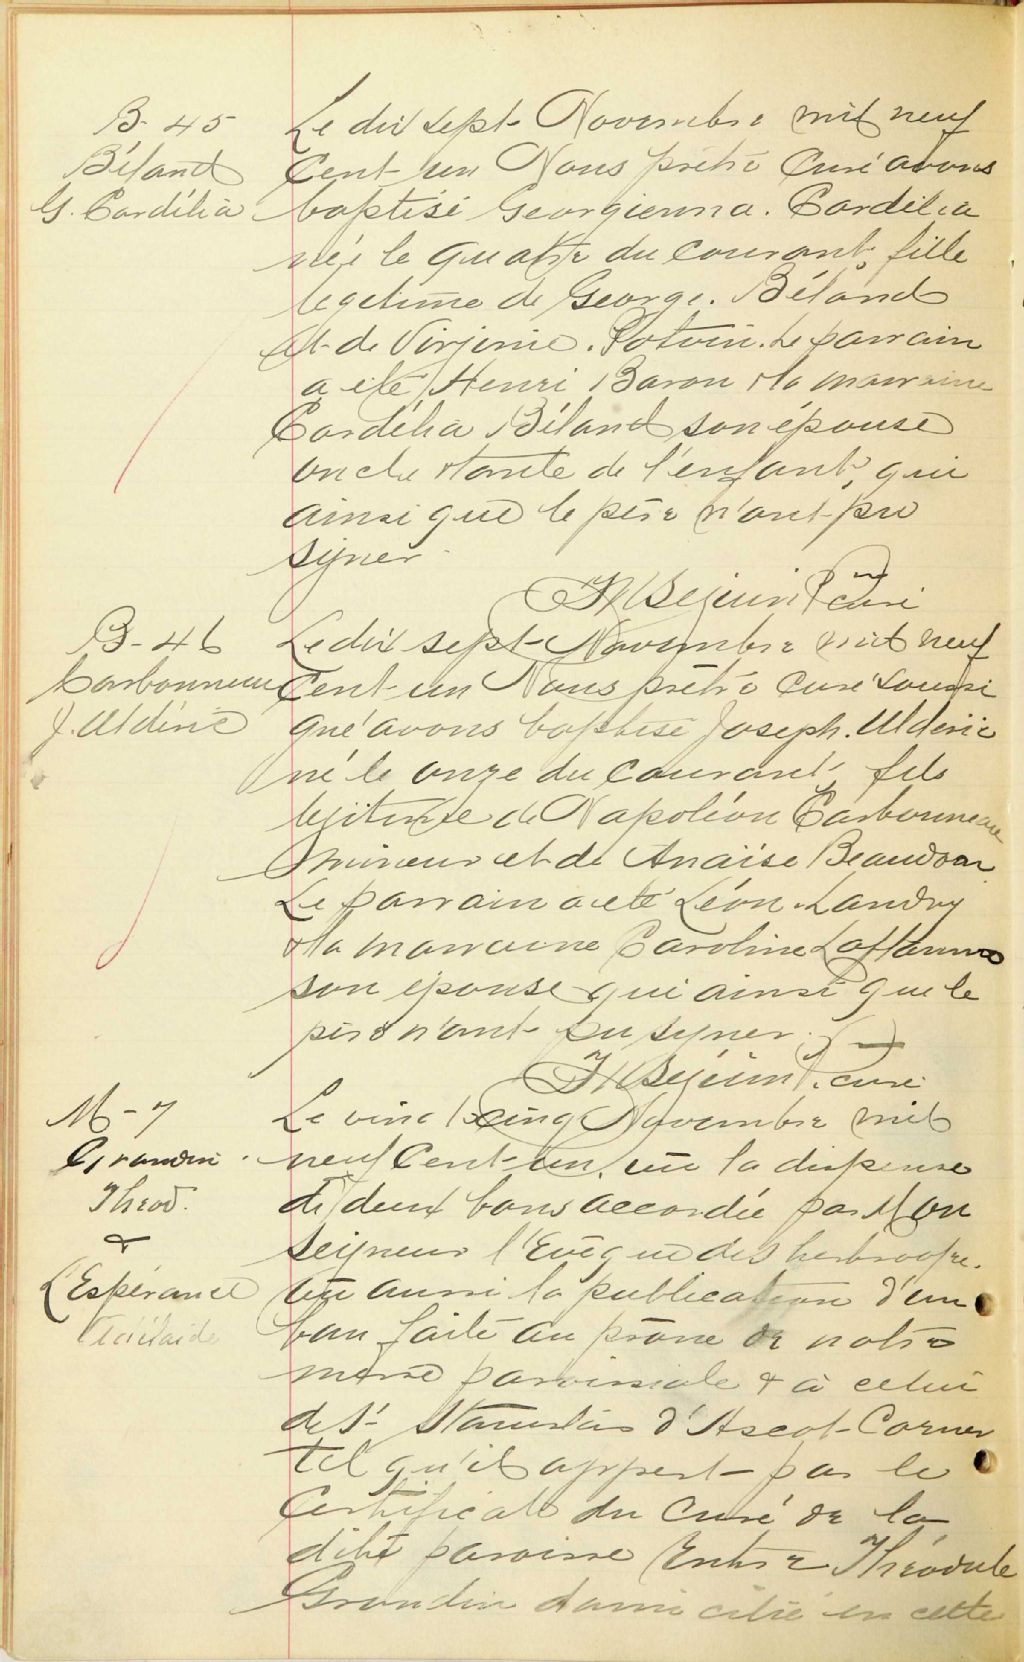 B-45
Béland
G. Cordélia
Le dix sept Novembre mil neuf
Cent-un Nous prêtre Curé avons
baptisé Georgienna. Cordélia
née le quatre du courant, fille
legetime de George. Béland
et de Virjinie. Potvin. Le parrain
a été Henri Baron & la marraine
Cordélia Béland son épouse
oncle & tante de l'enfant, qui
ainsi que le père n'ont pu
signer
curé
B-46
Carbonneau
J. Uldéric
Le dix sept Novembre mil neuf
Cent-un Nous prêtre Curé soussi
gné avons baptisé Joseph. Uldéric
né le onze du courant, fils
legitime de Napoléon Carbonneau
mineur et de Anaïse Beaudoin
Le parrain a été Léon. Landry
& la marraine Caroline Laflamme
son épouse qui ainsi que le
père n'ont pu signer.
curé
M-7
Grandin
Théod.
&
L'Espérance
Adélaide
Le vingt cinq Novembre mil
neuf Cent-un, vu la dispense
de deux bans accordée par Mon
seigneur l'Evêque de Sherbrooke.
vu aussi la publication d'un
ban faite au prône de notre
messe paroissiale & à celui
de St- Stanislas d'Ascot-Corner
tel qu'il appert par le
Certificat du Curé de la
dite paroisse Entre Théodule
Grondin domicilié en cette